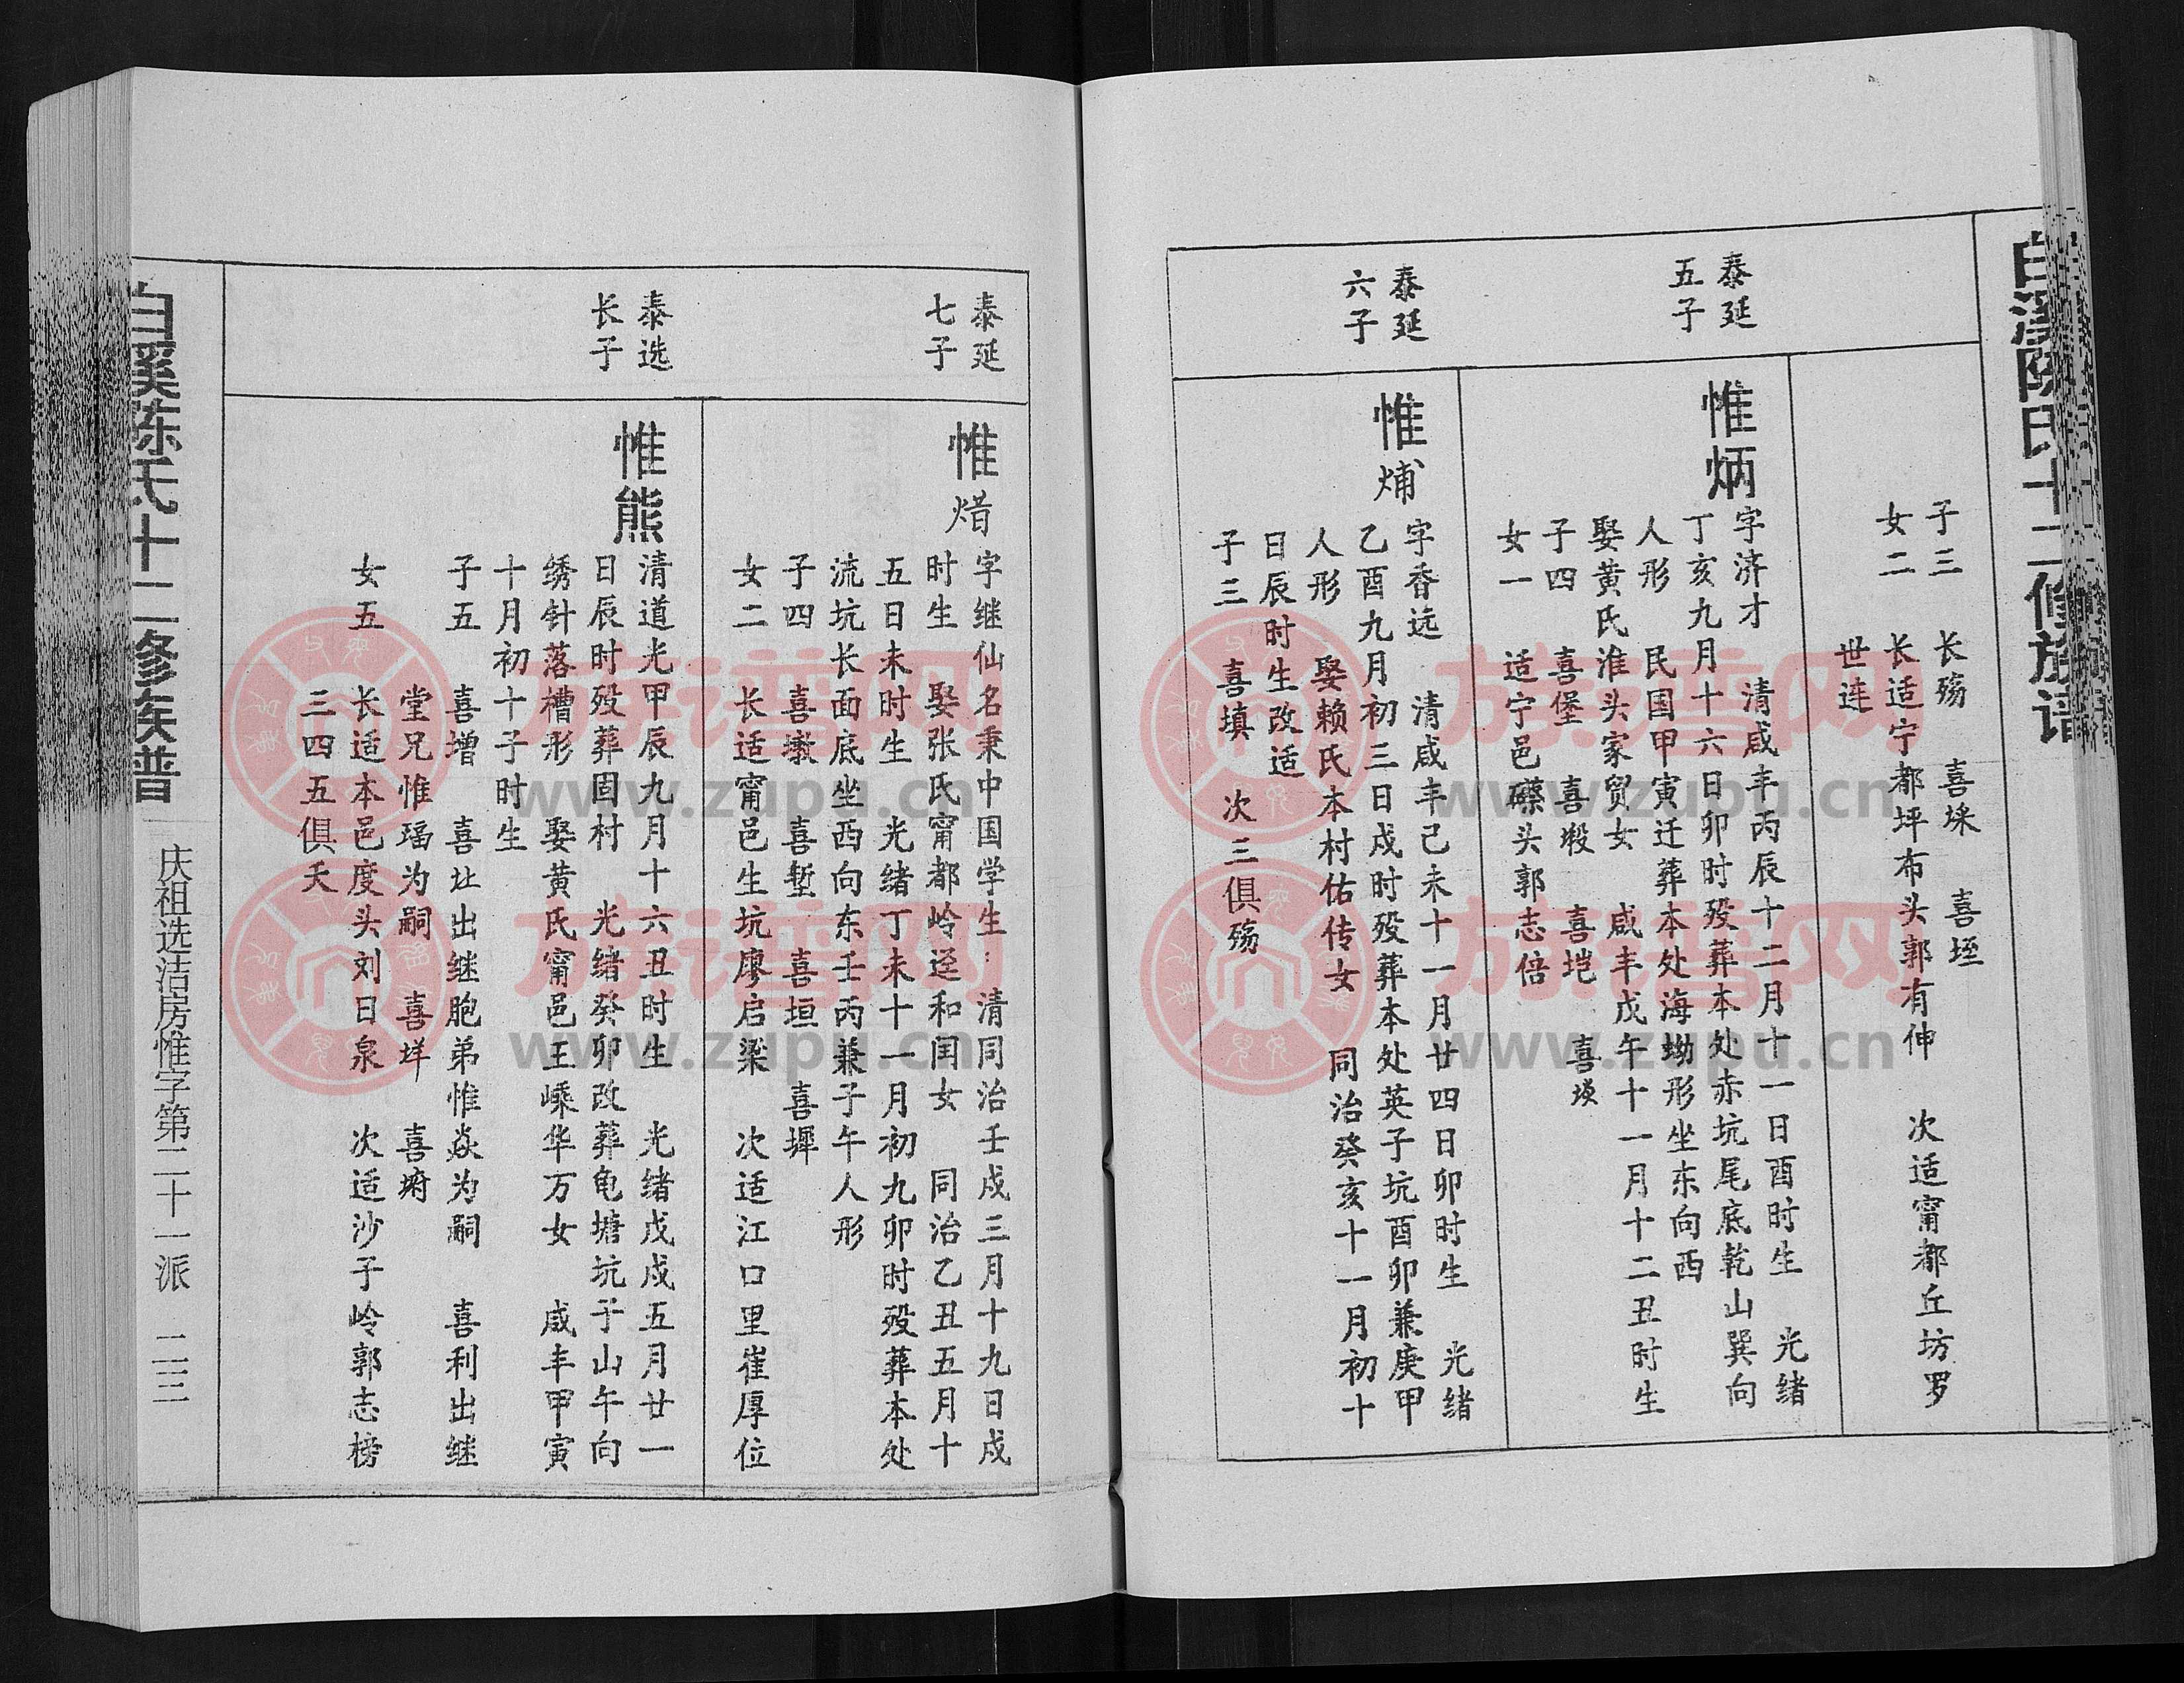 白溪陈氏十二修族谱
子三　长殇　喜埰　喜垤
女二　长适宁都坪布头郭有伸　次适甯都丘坊罗
世连
泰延
五子
惟炳
字济才　清咸丰丙辰十二月十一日酉时生　光绪
丁亥九月十六日卯时殁葬本处赤坑尾底乾山巽向
人形　民国甲寅迁葬本处海坳形坐东向西
娶黄氏淮头家贸女　咸丰戊午十一月十二丑时生
子四　喜堡　喜塅　喜垲　喜埮
女一　适宁邑磜头郭志倍
泰延
六子
惟烳
字香远　清咸丰己未十一月廿四日卯时生　光绪
乙酉九月初三日戍时殁葬本处英子坑酉卯兼庚甲
人形　娶赖氏本村佑传女　同治癸亥十一月初十
日辰时生改适
子三　喜填　次三俱殇
泰延
七子
惟焟
字继仙名秉中国学生　清同治壬戍三月十九日戍
时生　娶张氏甯都岭迳和闰女　同治乙丑五月十
五日未时生　光绪丁未十一月初九卯时殁葬本处
流坑长面底坐西向东壬丙兼子午人形
子四　喜墩　喜堑　喜垣　喜墀
女二　长适甯邑生坑廖启梁　次适江口里崔厚位
泰选
长子
惟熊
清道光甲辰九月十六丑时生　光绪戍戍五月廿一
日辰时殁葬固村　光绪癸卯改葬龟塘坑子山午向
绣针落槽形　娶黄氏甯邑王嵊华万女　咸丰甲寅
十月初十子时生
子五　喜增　喜址出继胞弟惟焱为嗣　喜利出继
堂兄惟瑶为嗣　喜垟　喜塮
女五　长适本邑度头刘日泉　次适沙子岭郭志榜
三四五俱夭
白溪陈氏十二修族谱
庆祖选洁房惟字第二十一派　二二三
族谱网
www.zupu.cn
族谱网
www.zupu.cn
族谱网
www.zupu.cn
族谱网
www.zupu.cn